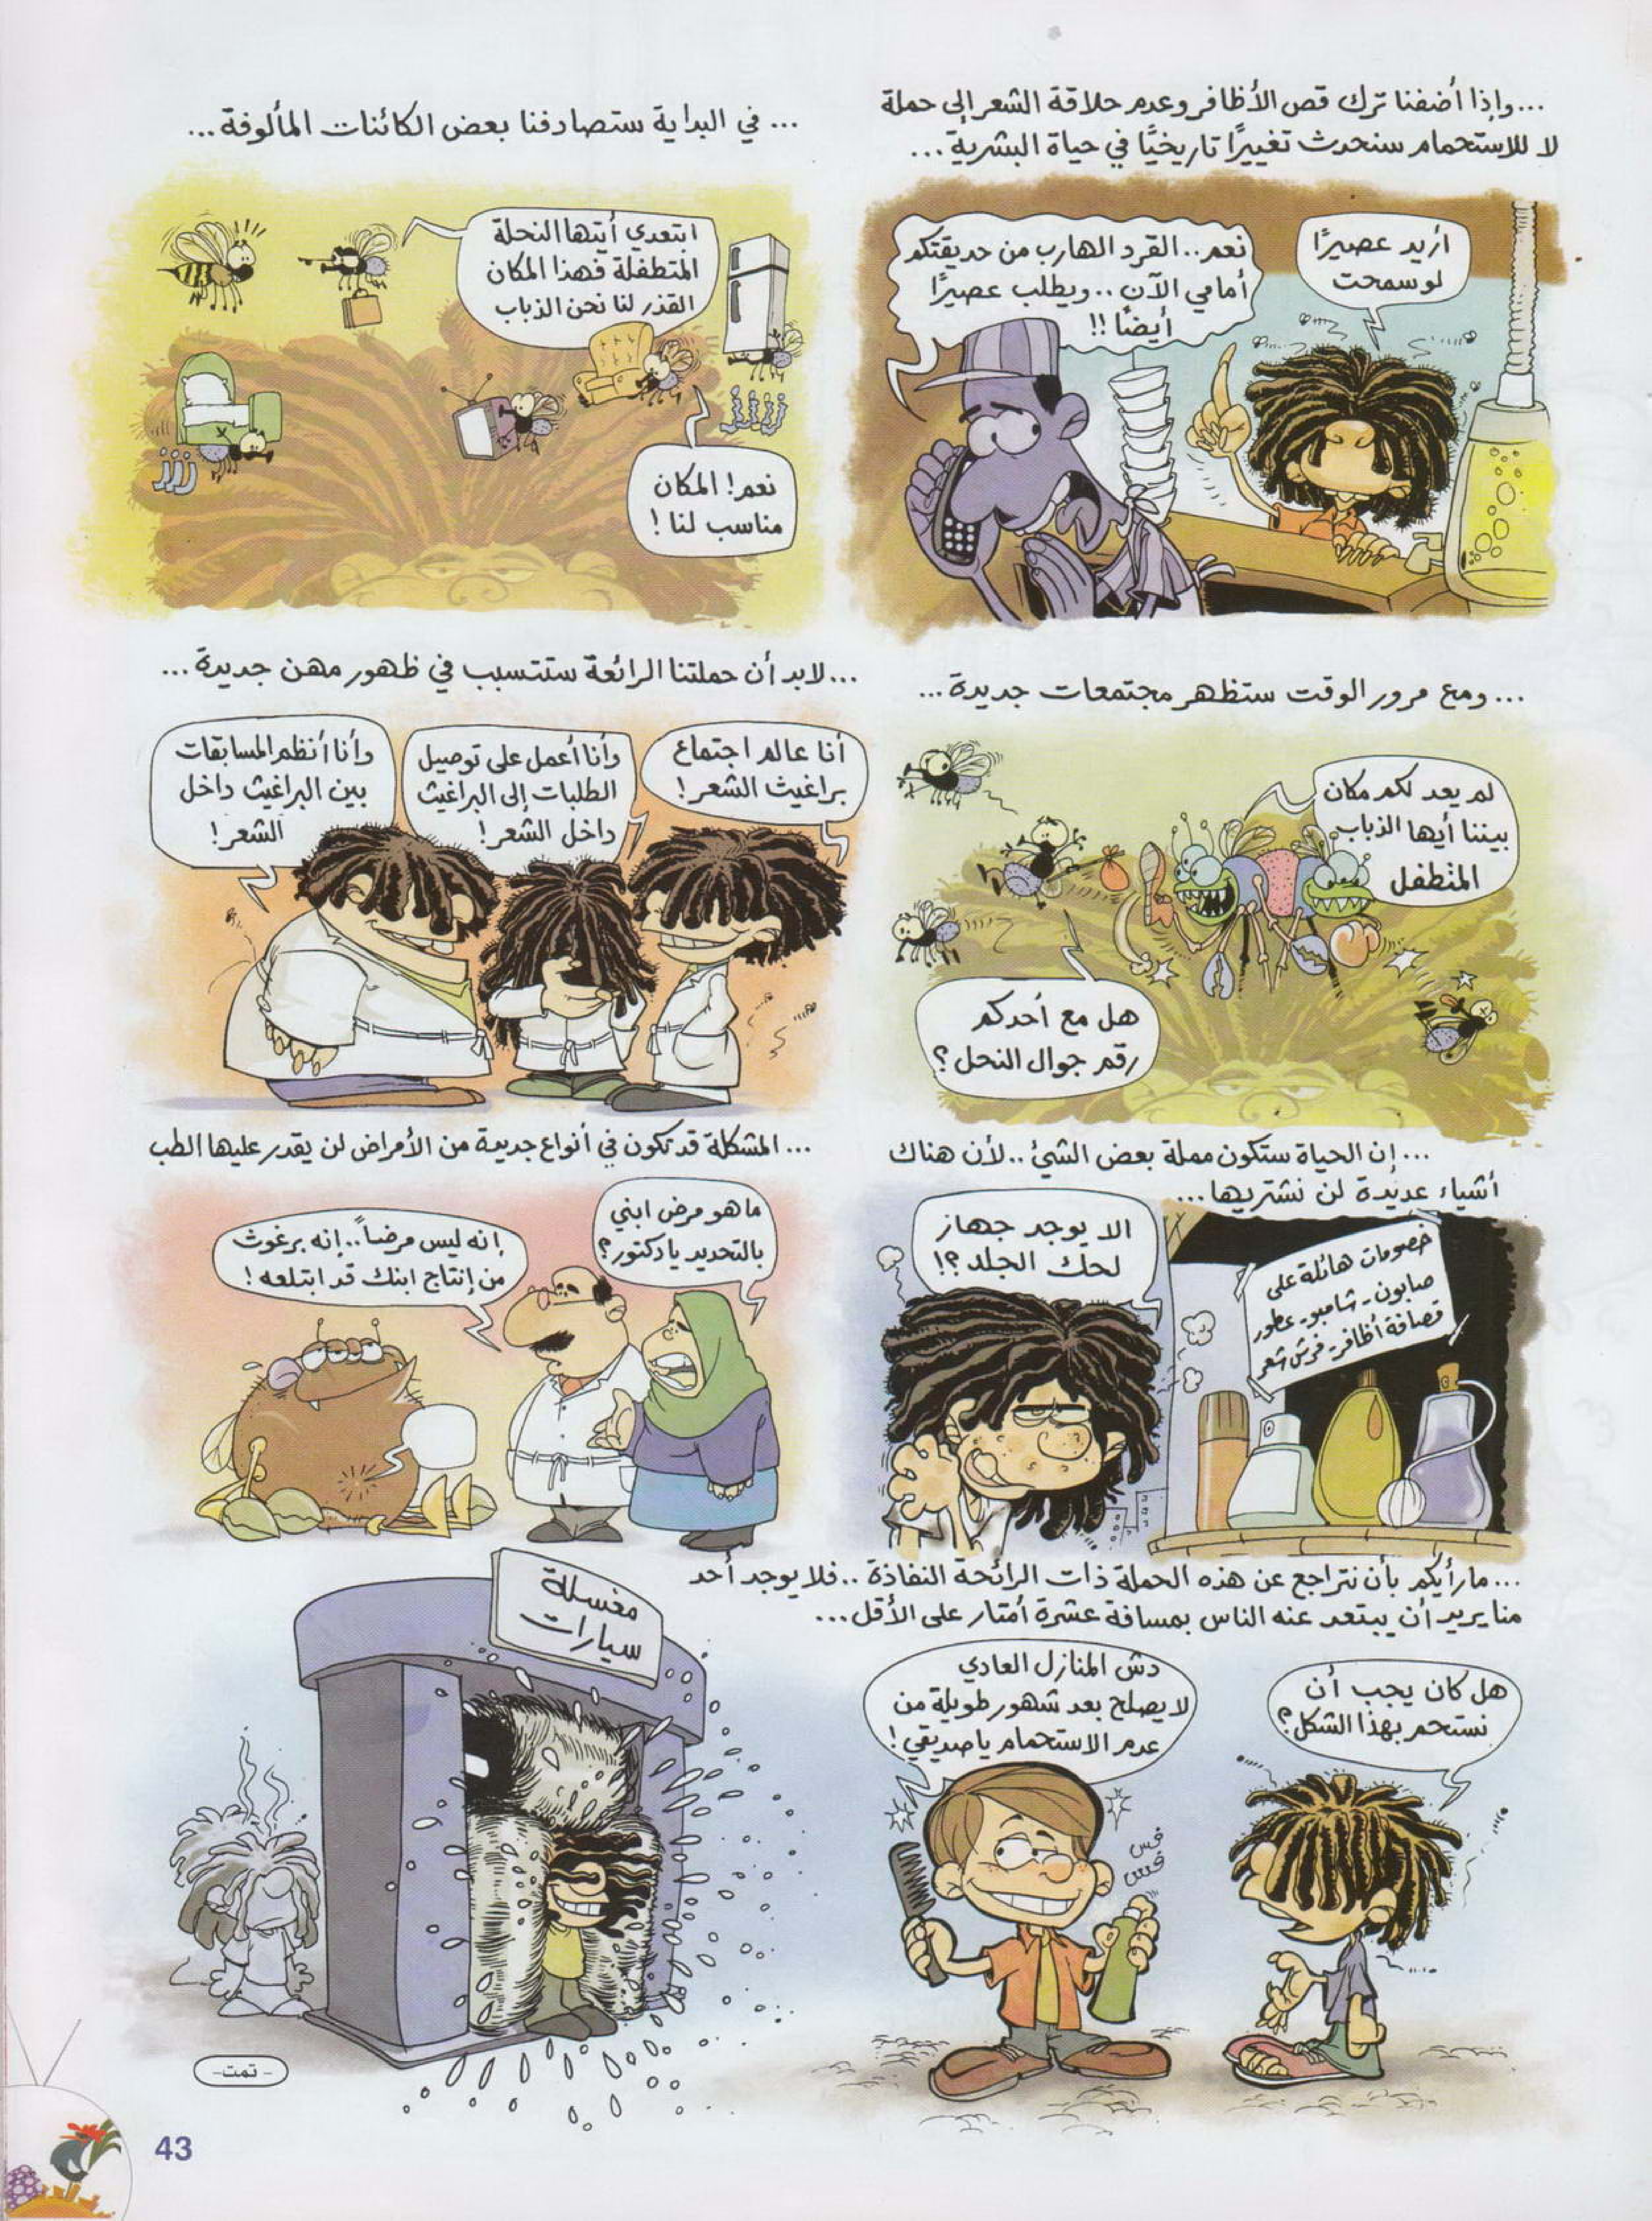 ...وإذا أضفنا ترك قص الأظافر وعدم حلاقة الشعر إلى حملة
لا للاستحمام سنحدث تغييرًا تاريخيًا في حياة البشرية...
أريد عصيرًا
لو سمحت
نعم.. القرد الهارب من حديقتكم
أمامي الآن.. ويطلب عصيرًا
أيضًا !!
... في البداية ستصادفنا بعض الكائنات المألوفة...
ابتعدي أيتها النحلة
المتطفلة فهذا المكان
القذر لنا نحن الذباب
نعم! المكان
مناسب لنا !
ززز
... ومع مرور الوقت ستظهر مجتمعات جديدة...
لم يعد لكم مكان
بيننا أيها الذباب
المتطفل
هل مع أحدكم
رقم جوال النحل ؟
...لابد أن حملتنا الرائعة ستتسبب في ظهور مهن جديدة...
أنا عالم اجتماع
براغيث الشعر !
وأنا أعمل على توصيل
الطلبات إلى البراغيث
داخل الشعر !
وأنا أنظم المسابقات
بين البراغيث داخل
الشعر !
...إن الحياة ستكون مملة بعض الشئ.. لأن هناك
أشياء عديدة لن نشتريها...
الا يوجد جهاز
لحك الجلد ؟!
خصومات هائلة على
صابون - شامبو - عطور
قصافة أظافر - فرش شعر
... المشكلة قد تكون في أنواع جديدة من الأمراض لن يقدر عليها الطب
ما هو مرض ابني
بالتحديد يا دكتور ؟
إنه ليس مرضاً.. إنه برغوث
من إنتاج ابنك قد ابتلعه !
...ما رأيكم بأن نتراجع عن هذه الحملة ذات الرائحة النفاذة.. فلا يوجد أحد
منا يريد أن يبتعد عنه الناس بمسافة عشرة أمتار على الأقل...
هل كان يجب أن
نستحم بهذا الشكل ؟
دش المنازل العادي
لا يصلح بعد شهور طويلة من
عدم الاستحمام يا صديقي !
فس
فس
مغسلة
سيارات
- تمت -
43